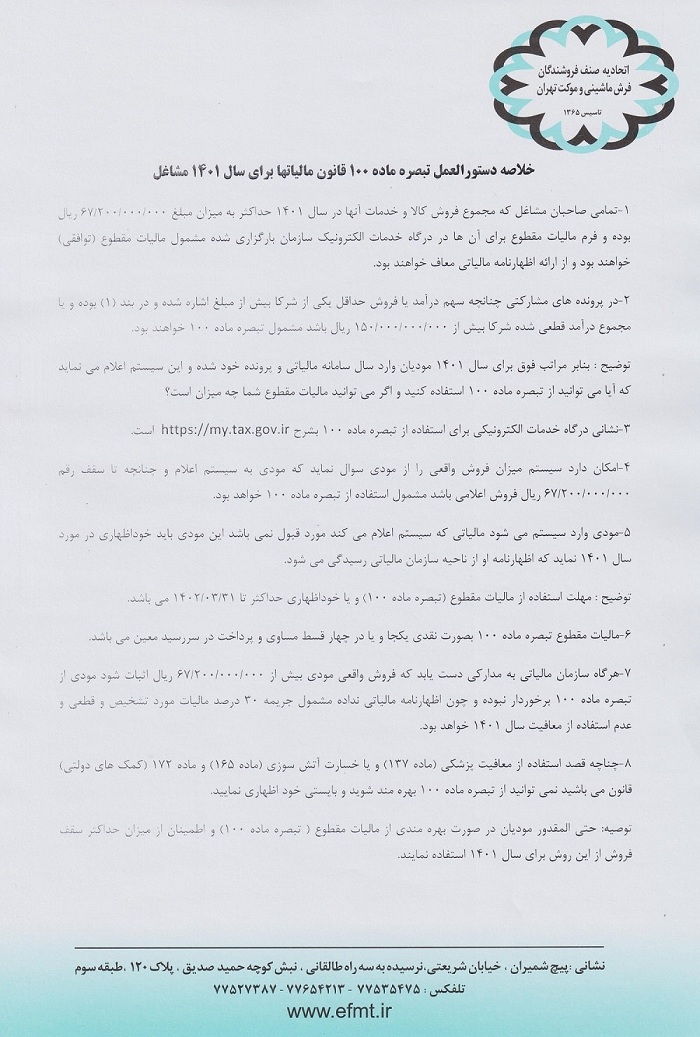 اتحادیه صنف فروشندگان
فرش ماشینی و موکت تهران
تاسیس ۱۳۶۵
خلاصه دستورالعمل تبصره ماده ۱۰۰ قانون مالیاتها برای سال ۱۴۰۱ مشاغل
۱-تمامی صاحبان مشاغل که مجموع فروش کالا و خدمات آنها در سال ۱۴۰۱ حداکثر به میزان مبلغ ۶۷/۲۰۰/۰۰۰/۰۰۰ ریال
بوده و فرم مالیات مقطوع برای آن ها در درگاه خدمات الکترونیک سازمان بارگزاری شده مشمول مالیات مقطوع (توافقی)
خواهند بود و از ارائه اظهارنامه مالیاتی معاف خواهند بود.
۲-در پرونده های مشارکتی چنانجه سهم درآمد یا فروش حداقل یکی از شرکا بیش از مبلغ اشاره شده و در بند (۱) بوده و یا
مجموع درآمد قطعی شده شرکا بیش از ۱۵۰/۰۰۰/۰۰۰/۰۰۰ ریال باشد مشمول تبصره ماده ۱۰۰ خواهند بود.
توضیح : بنابر مراتب فوق برای سال ۱۴۰۱ مودیان وارد سال سامانه مالیاتی و پرونده خود شده و این سیستم اعلام می نماید
که آیا می توانید از تبصره ماده ۱۰۰ استفاده کنید و اگر می توانید مالیات مقطوع شما چه میزان است؟
۳-نشانی درگاه خدمات الکترونیکی برای استفاده از تبصره ماده ۱۰۰ بشرح https://my.tax.gov.ir است.
۴-امکان دارد سیستم میزان فروش واقعی را از مودی سوال نماید که مودی به سیستم اعلام و چنانجه تا سقف رقم
۶۷/۲۰۰/۰۰۰/۰۰۰ ریال فروش اعلامی باشد مشمول استفاده از تبصره ماده ۱۰۰ خواهد بود.
۵-مودی وارد سیستم می شود مالیاتی که سیستم اعلام می کند مورد قبول نمی باشد این مودی باید خوداظهاری در مورد
سال ۱۴۰۱ نماید که اظهارنامه او از ناحیه سازمان مالیاتی رسیدگی می شود.
توضیح : مهلت استفاده از مالیات مقطوع (تبصره ماده ۱۰۰) و یا خوداظهاری حداکثر تا ۱۴۰۲/۰۳/۳۱ می باشد.
۶-مالیات مقطوع تبصره ماده ۱۰۰ بصورت نقدی یکجا و یا در چهار قسط مساوی و پرداخت در سررسید معین می باشد.
۷-هرگاه سازمان مالیاتی به مدارکی دست یابد که فروش واقعی مودی بیش از ۶۷/۲۰۰/۰۰۰/۰۰۰ ریال اثبات شود مودی از
تبصره ماده ۱۰۰ برخوردار نبوده و چون اظهارنامه مالیاتی نداده مشمول جریمه ۳۰ درصد مالیات مورد تشخیص و قطعی و
عدم استفاده از معافیت سال ۱۴۰۱ خواهد بود.
۸-چناچه قصد استفاده از معافیت پزشکی (ماده ۱۳۷) و یا خسارت آتش سوزی (ماده ۱۶۵) و ماده ۱۷۲ (کمک های دولتی)
قانون می باشید نمی توانید از تبصره ماده ۱۰۰ بهره مند شوید و بایستی خود اظهاری نمایید.
توصیه: حتی المقدور مودیان در صورت بهره مندی از مالیات مقطوع ( تبصره ماده ۱۰۰) و اطمینان از میزان حداکثر سقف
فروش از این روش برای سال ۱۴۰۱ استفاده نمایند.
نشانی :پیچ شمیران ، خیابان شریعتی،نرسیده به سه راه طالقانی ، نبش کوچه حمید صدیق ، پلاک ۱۲۰ ،طبقه سوم
تلفکس : ۷۷۵۳۵۴۷۵ - ۷۷۶۵۴۲۱۳ - ۷۷۵۲۷۳۸۷
www.efmt.ir